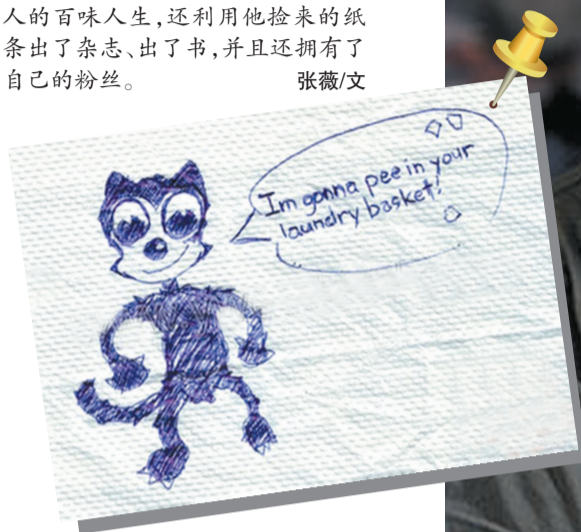 人的百味人生,还利用他捡来的纸
条出了杂志、出了书,并且还拥有了
自己的粉丝。 张薇/文
Im gonna pee in your
laundry basket!